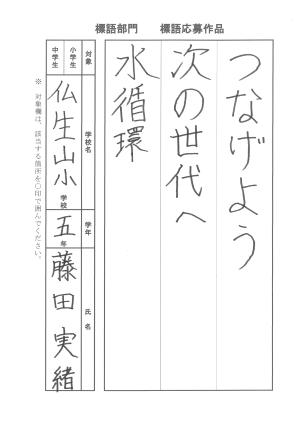 標語部門　標語応募作品
つなげよう
次の世代へ
水循環
対象
小学生
中学生
学校名
仏生山小学校
学年
五年
氏名
藤田実緒
※　対象欄は、該当する箇所を〇印で囲んでください。